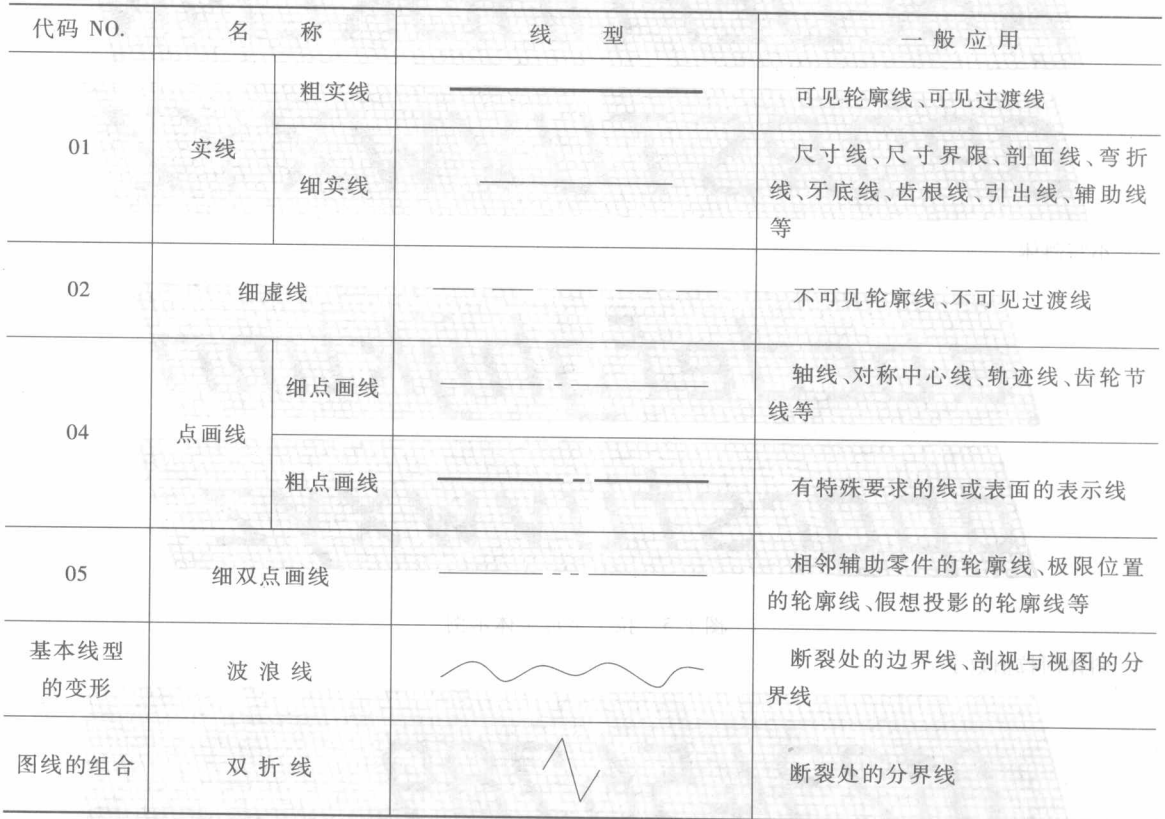 代码 NO. 名 称 线 型 一般应用
01 实线 粗实线 可见轮廓线、可见过渡线
细实线 尺寸线、尺寸界限、剖面线、弯折
线、牙底线、齿根线、引出线、辅助线
等
02 细虚线 不可见轮廓线、不可见过渡线
04 点画线 细点画线 轴线、对称中心线、轨迹线、齿轮节
线等
粗点画线 有特殊要求的线或表面的表示线
05 细双点画线 相邻辅助零件的轮廓线、极限位置
的轮廓线、假想投影的轮廓线等
基本线型
的变形 波浪线 断裂处的边界线、剖视与视图的分
界线
图线的组合 双折线 断裂处的分界线